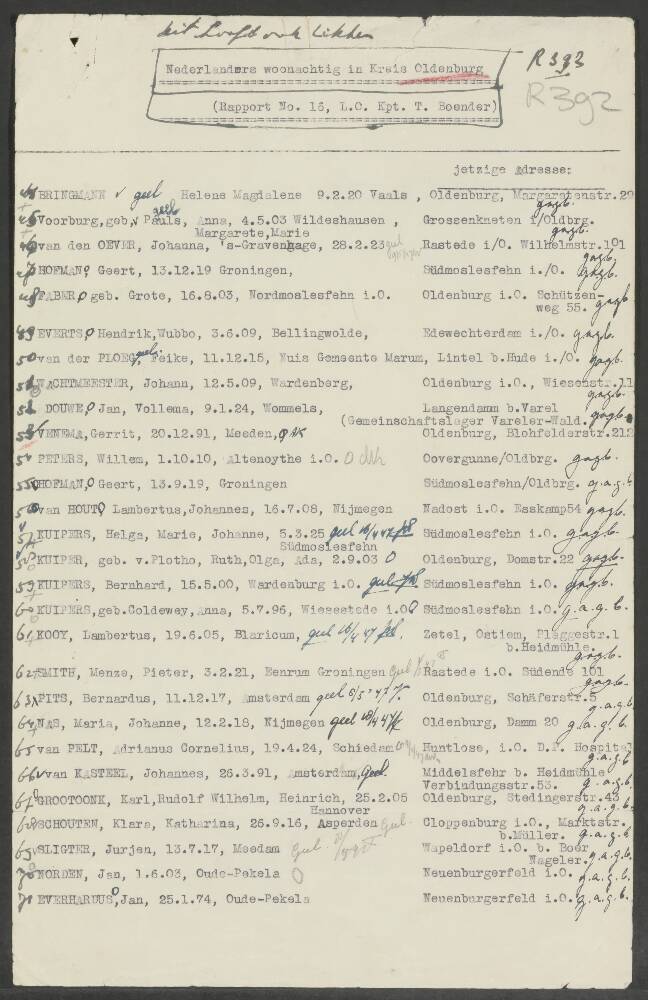 Nederlanders woonachtig in Kreis Oldenburg
R 392
(Rapport No. 16, L.O. Kpt. T. Boender)
R392
jetzige Adresse:
BRINGMANN geel Helene Magdalene 9.2.20 Vaals , Oldenburg, Margaretenstr.29
g.a.g.b.
Voorburg,geb. Pauls, Anna, 4.5.03 Wildeshausen , Grossenkneten i/Oldbrg.
Margarete,Marie g.a.g.b.
van den OEVER, Johanna, 's-Gravenhage, 28.2.23 Rastede i/O. Wilhelmstr.101
g.a.g.b.
HOFMAN, Geert, 13.12.19 Groningen, Südmoslesfehn i./O. g.a.g.b.
48 FABER, geb. Grote, 16.8.03, Nordmoslesfehn i.O. Oldenburg i.O. Schützen-
weg 55. g.a.g.b.
49 EVERTS, Hendrik,Wubbo, 3.6.09, Bellingwolde, Edewechterdam i./O. g.a.g.b.
50 van der PLOEG, Feike, 11.12.15, Nuis Gemeente Marum, Lintel b.Hude i./O. g.a.g.b.
51 WACHTMEESTER, Johann, 12.5.09, Wardenberg, Oldenburg i.O., Wiesenstr.11
g.a.g.b.
52 DOUWE, Jan, Vollema, 9.1.24, Wommels, Langendamm b.Varel
(Gemeinschaftslager Vareler-Wald. g.a.g.b.
53 VENEMA,Gerrit, 20.12.91, Meeden, Oldenburg, Blohfelderstr.212
54 PETERS, Willem, 1.10.10, Altenoythe i.O. Oovergunne/Oldbrg. g.a.g.b.
55 HOFMAN, Geert, 13.9.19, Groningen Südmoslesfehn/Oldbrg. g.a.g.b.
56 van HOUT, Lambertus,Johannes, 16.7.08, Nijmegen Nadost i.O. Esskamp54 g.a.g.b.
57 KUIPERS, Helga, Marie, Johanne, 5.3.25 geel 16/4 47 Südmoslesfehn i.O. g.a.g.b.
Südmoslesfehn
58 KUIPER, geb. v.Plotho, Ruth,Olga, Ada, 2.9.03 O Oldenburg, Domstr.22 g.a.g.b.
59 KUIPERS, Bernhard, 15.5.00, Wardenburg i.O. geel Südmoslesfehn i.O. g.a.g.b.
60 KUIPERS,geb.Coldewey,Anna, 5.7.96, Wiesestede i.O. Südmoslesfehn i.O. g.a.g.b.
61 KOOY, Lambertus, 19.6.05, Blaricum, geel 16/4 47 Zetel, Ostiem, Plaggestr.1
b.Heidmühle.
g.a.g.b.
62 SMITH, Menze, Pieter, 3.2.21, Eenrum Groningen Rastede i.O. Südende 101
g.a.g.b.
63 PITS, Bernardus, 11.12.17, Amsterdam geel Oldenburg, Schäferstr.5
g.a.g.b.
64 NAS, Maria, Johanne, 12.2.18, Nijmegen geel Oldenburg, Damm 20 g.a.g.b.
65 van PELT, Adrianus Cornelius, 19.4.24, Schiedam Huntlose, i.O. D.P. Hospital
g.a.g.b.
66 van KASTEEL, Johannes, 26.3.91, Amsterdam, Geel. Middelsfehr b. Heidmühle
Verbindungsstr.53. g.a.g.b.
67 GROOTOONK, Karl,Rudolf Wilhelm, Heinrich, 25.2.05 Oldenburg, Stedingerstr.43
Hannover g.a.g.b.
68 SCHOUTEN, Klara, Katharina, 26.9.16, Asperden Geel. Cloppenburg i.O., Marktstr.
b.Müller. g.a.g.b.
69 SLIGTER, Jurjen, 13.7.17, Meedam Geel. Wapeldorf i.O. b. Boer
Nageler. g.a.g.b.
70 NORDEN, Jan, 1.6.03, Oude-Pekela O Neuenburgerfeld i.O. g.a.g.b.
71 EVERHARDUS, Jan, 25.1.74, Oude-Pekela Neuenburgerfeld i.O. g.a.g.b.